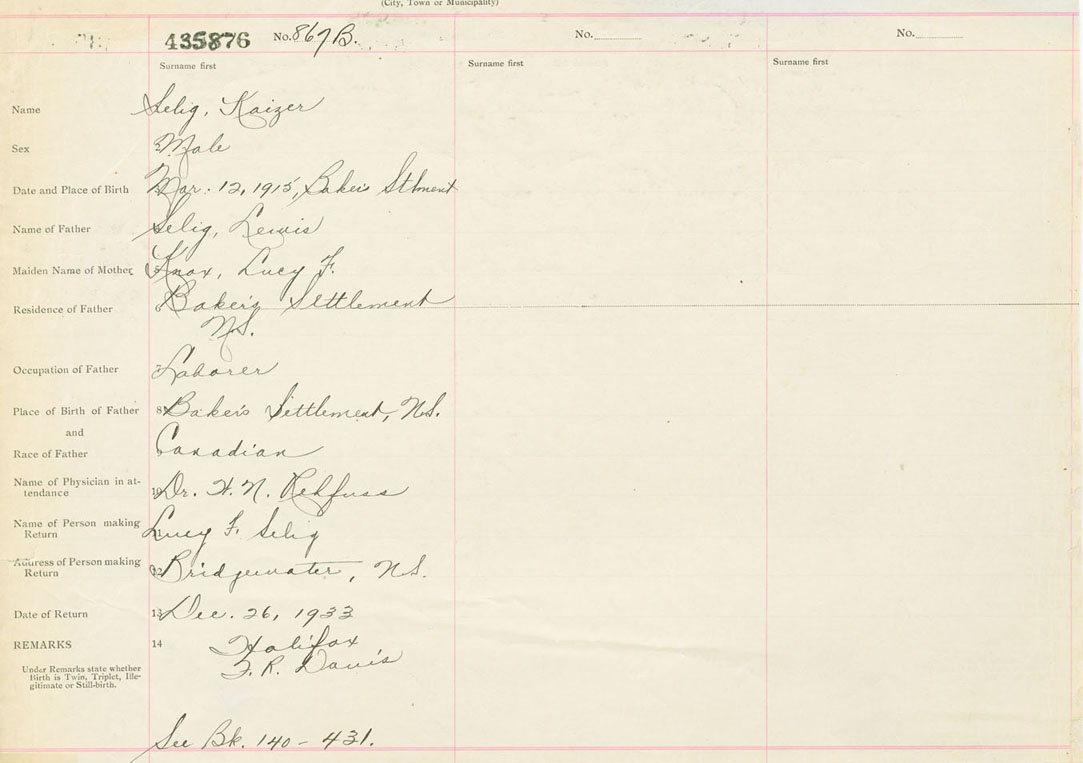 (City, Town or Municipality)
435876 No. 867B. No. No.
Surname first Surname first Surname first
Name Selig, Kaizer
Sex Male
Date and Place of Birth Mar. 12, 1915, Baker's Sttment
Name of Father Selig, Lewis
Maiden Name of Mother Knox, Lucy F.
Residence of Father 6 Baker's Settlement
N.S.
Occupation of Father 7 Laborer
Place of Birth of Father 8 Baker's Settlement, N.S.
and
Race of Father Canadian
Name of Physician in at-
tendance 10 Dr. H. N. Rehfuss
Name of Person making
Return 11 Lucy F. Selig
Address of Person making
Return 12 Bridgewater, N.S.
Date of Return 13 Dec. 26, 1933
REMARKS 14 Halifax
F. R. Davis
Under Remarks state whether
Birth is Twin, Triplet, Ille-
gitimate or Still-birth.
See Bk. 140 - 431.